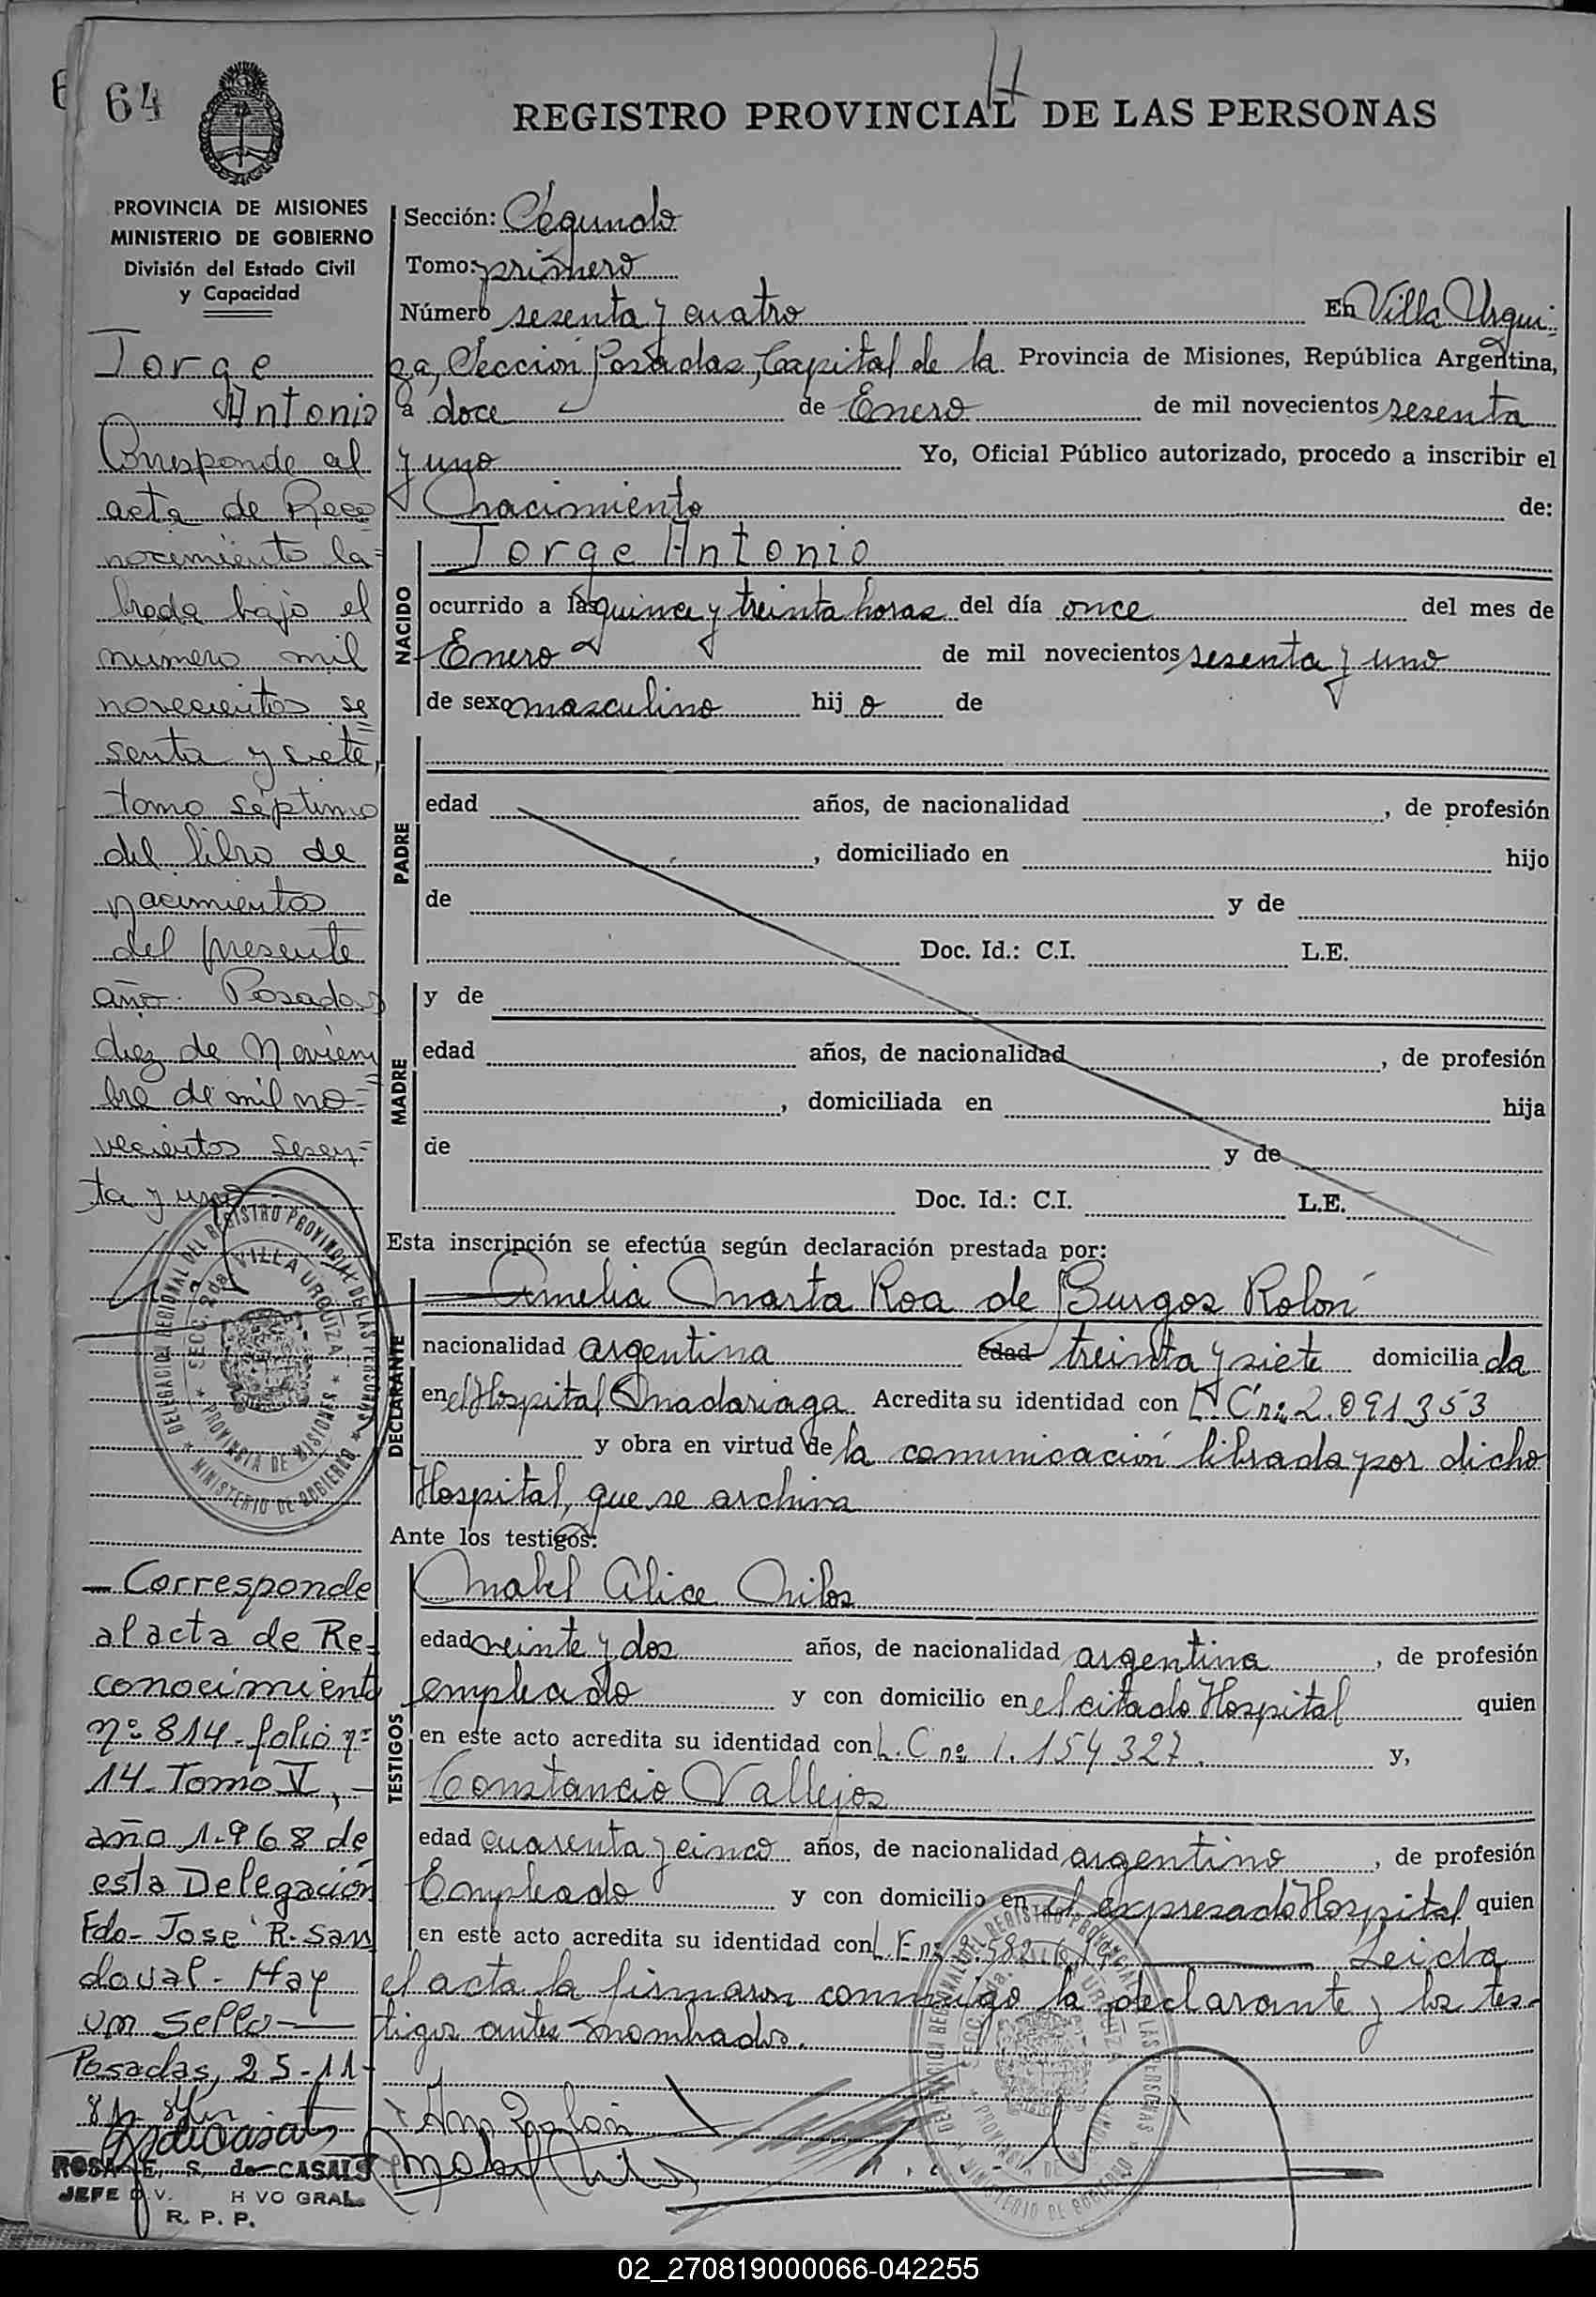 64
REGISTRO PROVINCIAL DE LAS PERSONAS
PROVINCIA DE MISIONES
MINISTERIO DE GOBIERNO
División del Estado Civil
y Capacidad
Jorge
Antonio
Corresponde al
acta de Reco
nocimiento la=
brada bajo el
número mil
novecientos se
senta y siete,
tomo séptimo
del libro de
nacimientos
del presente
año. Posadas
diez de Noviem
bre de mil no=
vecientos sesen=
ta y uno
— Corresponde
al acta de Re=
conocimiento
nº 814 - folio nº
14 - Tomo V, —
año 1.968 de
esta Delegación
Fdo - José R. San
doval - Hay
un sello —
Posadas, 25-11-
81
ROSA E. S. de CASALS
JEFE DIV. HVO GRAL.
R. P. P.
Sección: Segunda
Tomo: primero
Número sesenta y cuatro En Villa Urqui-
za, Sección Posadas, Capital de la Provincia de Misiones, República Argentina,
a doce de Enero de mil novecientos sesenta
y uno Yo, Oficial Público autorizado, procedo a inscribir el
Nacimiento de:
NACIDO
Jorge Antonio
ocurrido a las quince y treinta horas del día once del mes de
Enero de mil novecientos sesenta y uno
de sexo masculino hij o de
PADRE
edad años, de nacionalidad , de profesión
, domiciliado en hijo
de y de
Doc. Id.: C.I. L.E.
MADRE
y de
edad años, de nacionalidad , de profesión
, domiciliada en hija
de y de
Doc. Id.: C.I. L.E.
Esta inscripción se efectúa según declaración prestada por:
DECLARANTE
Amelia Marta Roa de Burgos Rolón
nacionalidad argentina edad treinta y siete domicilia da
en el Hospital Madariaga Acredita su identidad con L.C nº 2.091.353
y obra en virtud de la comunicación librada por dicho
Hospital, que se archiva
Ante los testigos:
TESTIGOS
Mabel Alice Milos
edad veinte y dos años, de nacionalidad argentina , de profesión
empleada y con domicilio en el citado Hospital quien
en este acto acredita su identidad con L.C nº 1.154.327. y,
Constancio Vallejos
edad cuarenta y cinco años, de nacionalidad argentino , de profesión
Empleado y con domicilio en el expresado Hospital quien
en este acto acredita su identidad con L.E nº Leida
el acta la firmaron conmigo la declarante y los tes-
tigos antes nombrados.
DELEGACION REGIONAL DEL REGISTRO PROVINCIAL DE LAS PERSONAS
SECC. 2da. VILLA URQUIZA
PROVINCIA DE MISIONES
MINISTERIO DE GOBIERNO
02_270819000066-042255